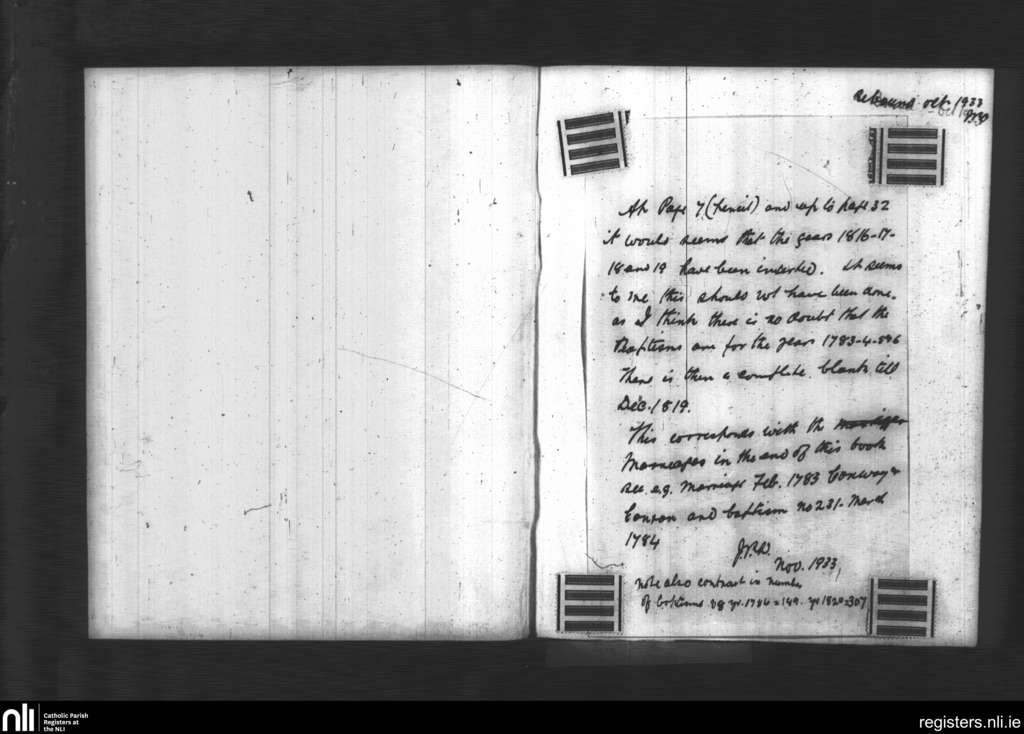 Rebound Oct 1933
At Page 7 (pencil) and up to page 32
it would seem that the years 1816-17-
18 and 19 have been inserted. It seems
to me this should not have been done.
as I think there is no doubt that the
Baptisms are for the years 1783-4-5&6
There is then a complete blank till
Dec. 1819.
This corresponds with the
Marriages in the end of this book
see e.g. Marriage Feb. 1783 Conway &
and baptism no 231. March
1784
Nov. 1933
note also contrast in number
of baptisms yr. 1786 = 149. yr 1820 = 307
nli
Catholic Parish
Registers at
the NLI
registers.nli.ie